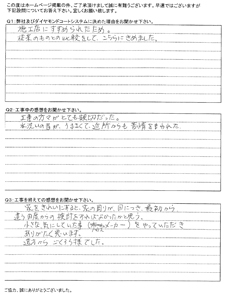 この度はホームページ掲載の件、ご了承頂きまして誠に有難うございます。早速ではございますが
下記設問についてお答え下さい。宜しくお願い致します。
Q1:弊社及びダイヤモンドコートシステムに決めた理由をお聞かせ下さい。
施工店にすすめられたため。
従来のものとの比較をして、こちらにきめました。
Q2:工事中の感想をお聞かせ下さい。
工事の方々がとても親切だった。
水洗いの音が、うるさくて、近所からも苦情をまねかれた
Q3:工事を終えての感想をお聞かせ下さい。
家をきれいにすると、家の周りが、目につき、最初から
違う角度からの検討をすればよかったかと思う。
小さな気にしていた事(メーカー)をやっていただき
ありがたく思います。
遠方からごくろう様でした。
ご協力、誠にありがとうございました。